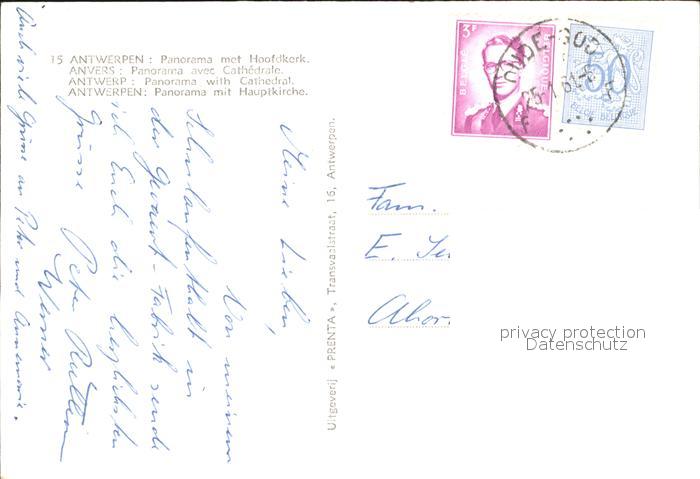 15 ANTWERPEN : Panorama met Hoofdkerk.
ANVERS : Panorama avec Cathédrale.
ANTWERP : Panorama with Cathedral.
ANTWERPEN: Panorama mit Hauptkirche.
Meine Lieben,
Von meinem
Schulaufenthalt in
der Gevaert-Fabrik sende
ich Euch die herzlichsten
Grüsse Peter
Werner
Auch viele Grüsse an Peter und Annemarie.
Uitgeverij « PRENTA », Transvaalstraat, 16, Antwerpen.
3F
BELGIE
BELGIQUE
OUDE-GOD
25-1
F F
50
BELGIE BELGIQUE
Fam.
E.
Ahor.
privacy protection
Datenschutz